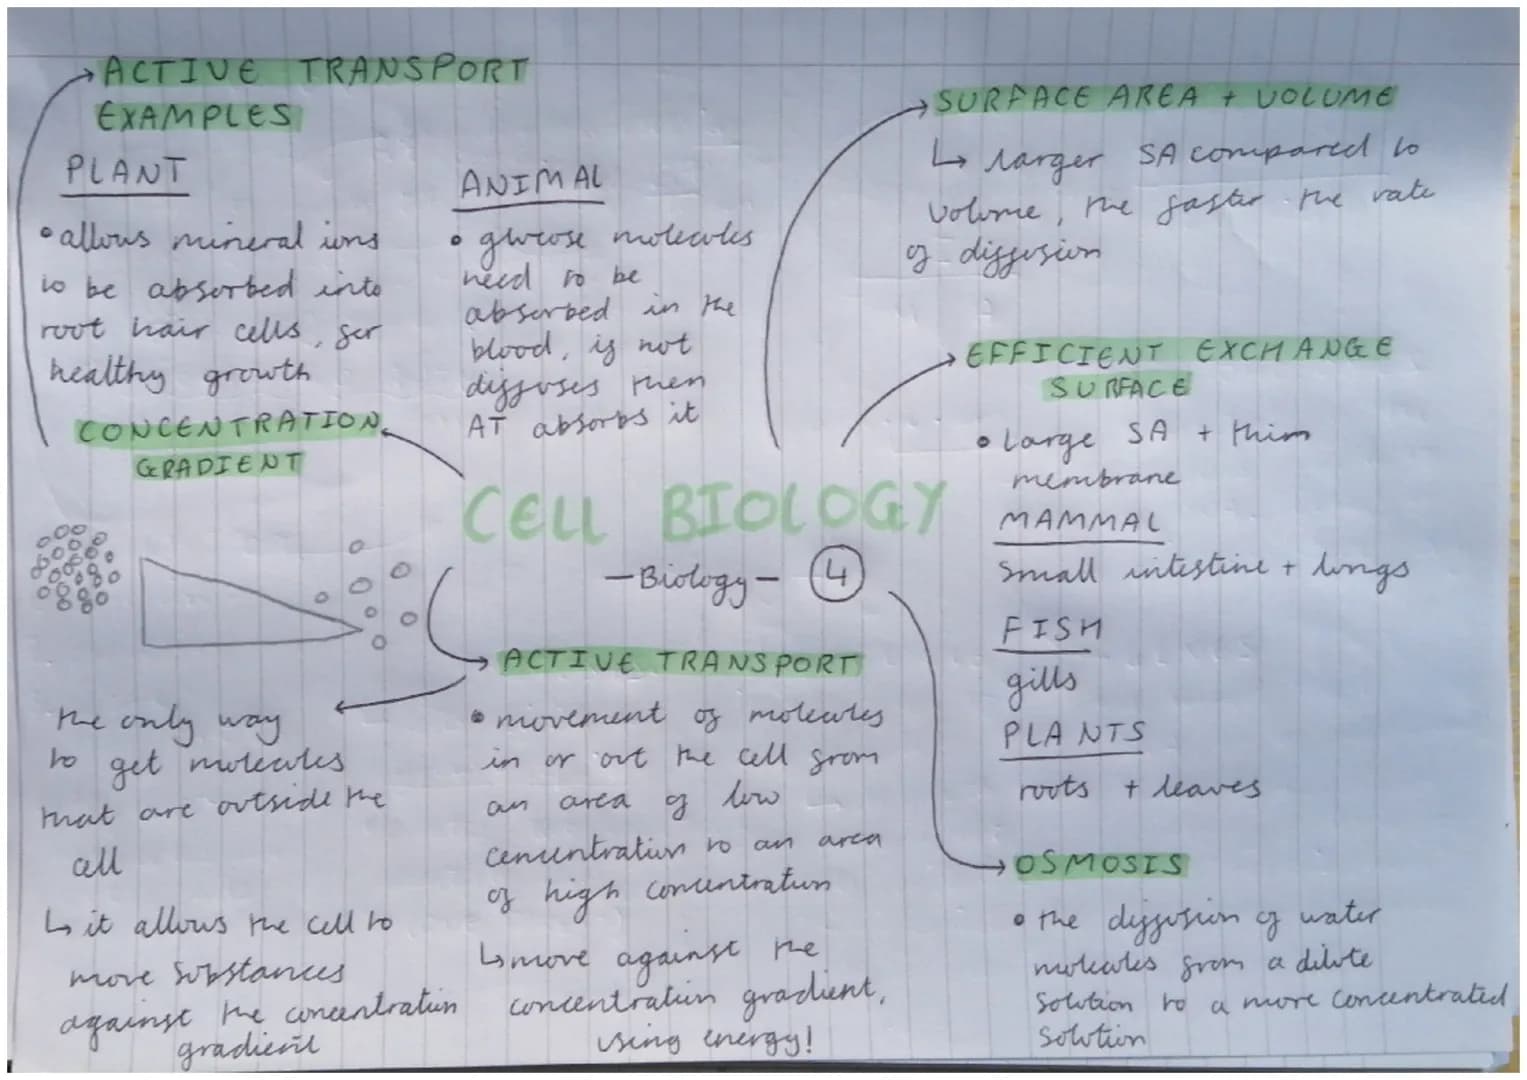 ACTIVE TRANSPORT
EXAMPLES
PLANT
• allows mineral ions
to be absorbed into
root hair cells, for
healthy growth
ANIMAL
• glucose molecules
need to be
absorbed in the
blood, if not
diffuses then
AT absorbs it
CONCENTRATION
GRADIENT
CELL BIOLOGY
- Biology - 4
ACTIVE TRANSPORT
• movement of molecules
in or out the cell from
an area of low
concentration to an area
of high concentration
↳ move against the
concentration gradient,
using energy!
the only way
to get molecules
that are outside the
cell
↳ it allows the cell to
move substances
against the concentration
gradient
SURFACE AREA + VOLUME
↳ larger SA compared to
volume, the faster the rate
of diffusion
EFFICIENT EXCHANGE
SURFACE
• large SA + thin
membrane
MAMMAL
small intestine + lungs
FISH
gills
PLANTS
roots + leaves
OSMOSIS
• the diffusion of water
molecules from a dilute
solution to a more concentrated
solution